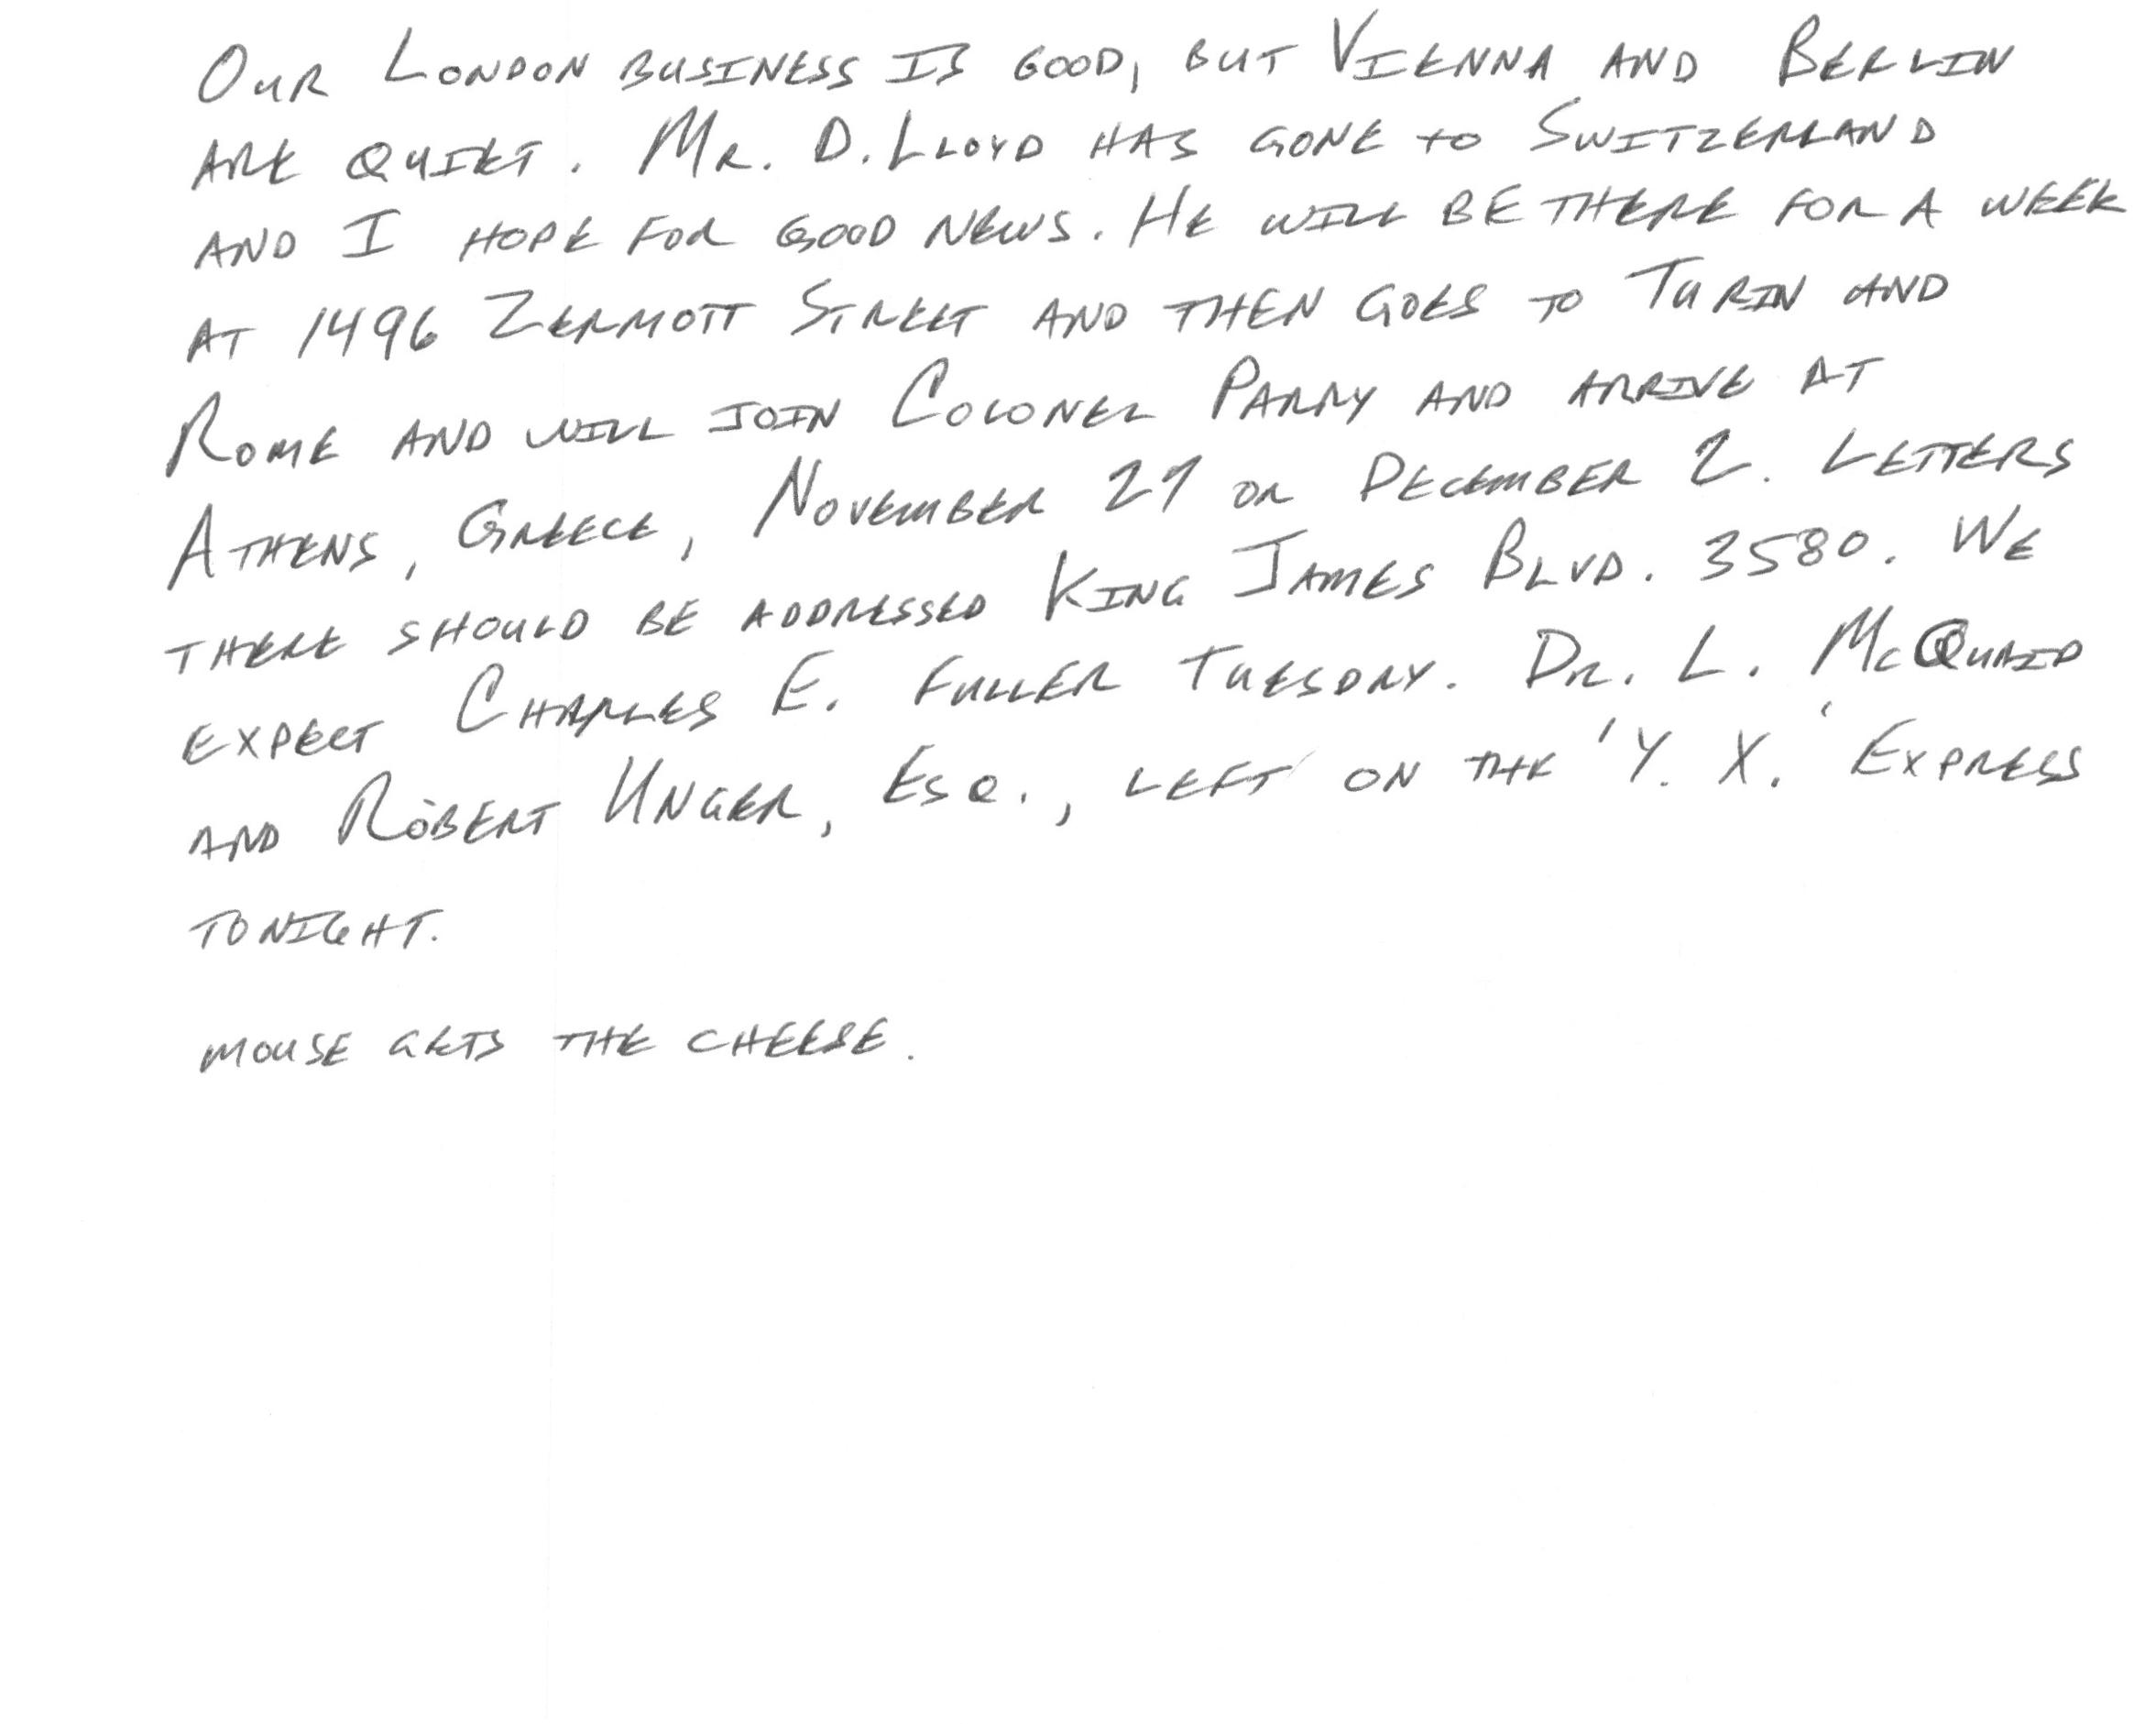 Our London business is good, but Vienna and Berlin
are quiet. Mr. D. Lloyd has gone to Switzerland
and I hope for good news. He will be there for a week
at 1496 Zermott Street and then goes to Turin and
Rome and will join Colonel Parry and arrive at
Athens, Greece, November 27 or December 2. Letters
there should be addressed King James Blvd. 3580. We
expect Charles E. Fuller Tuesday. Dr. L. McQuaid
and Robert Unger, Esq., left on the 'Y. X.' Express
tonight.
mouse gets the cheese.